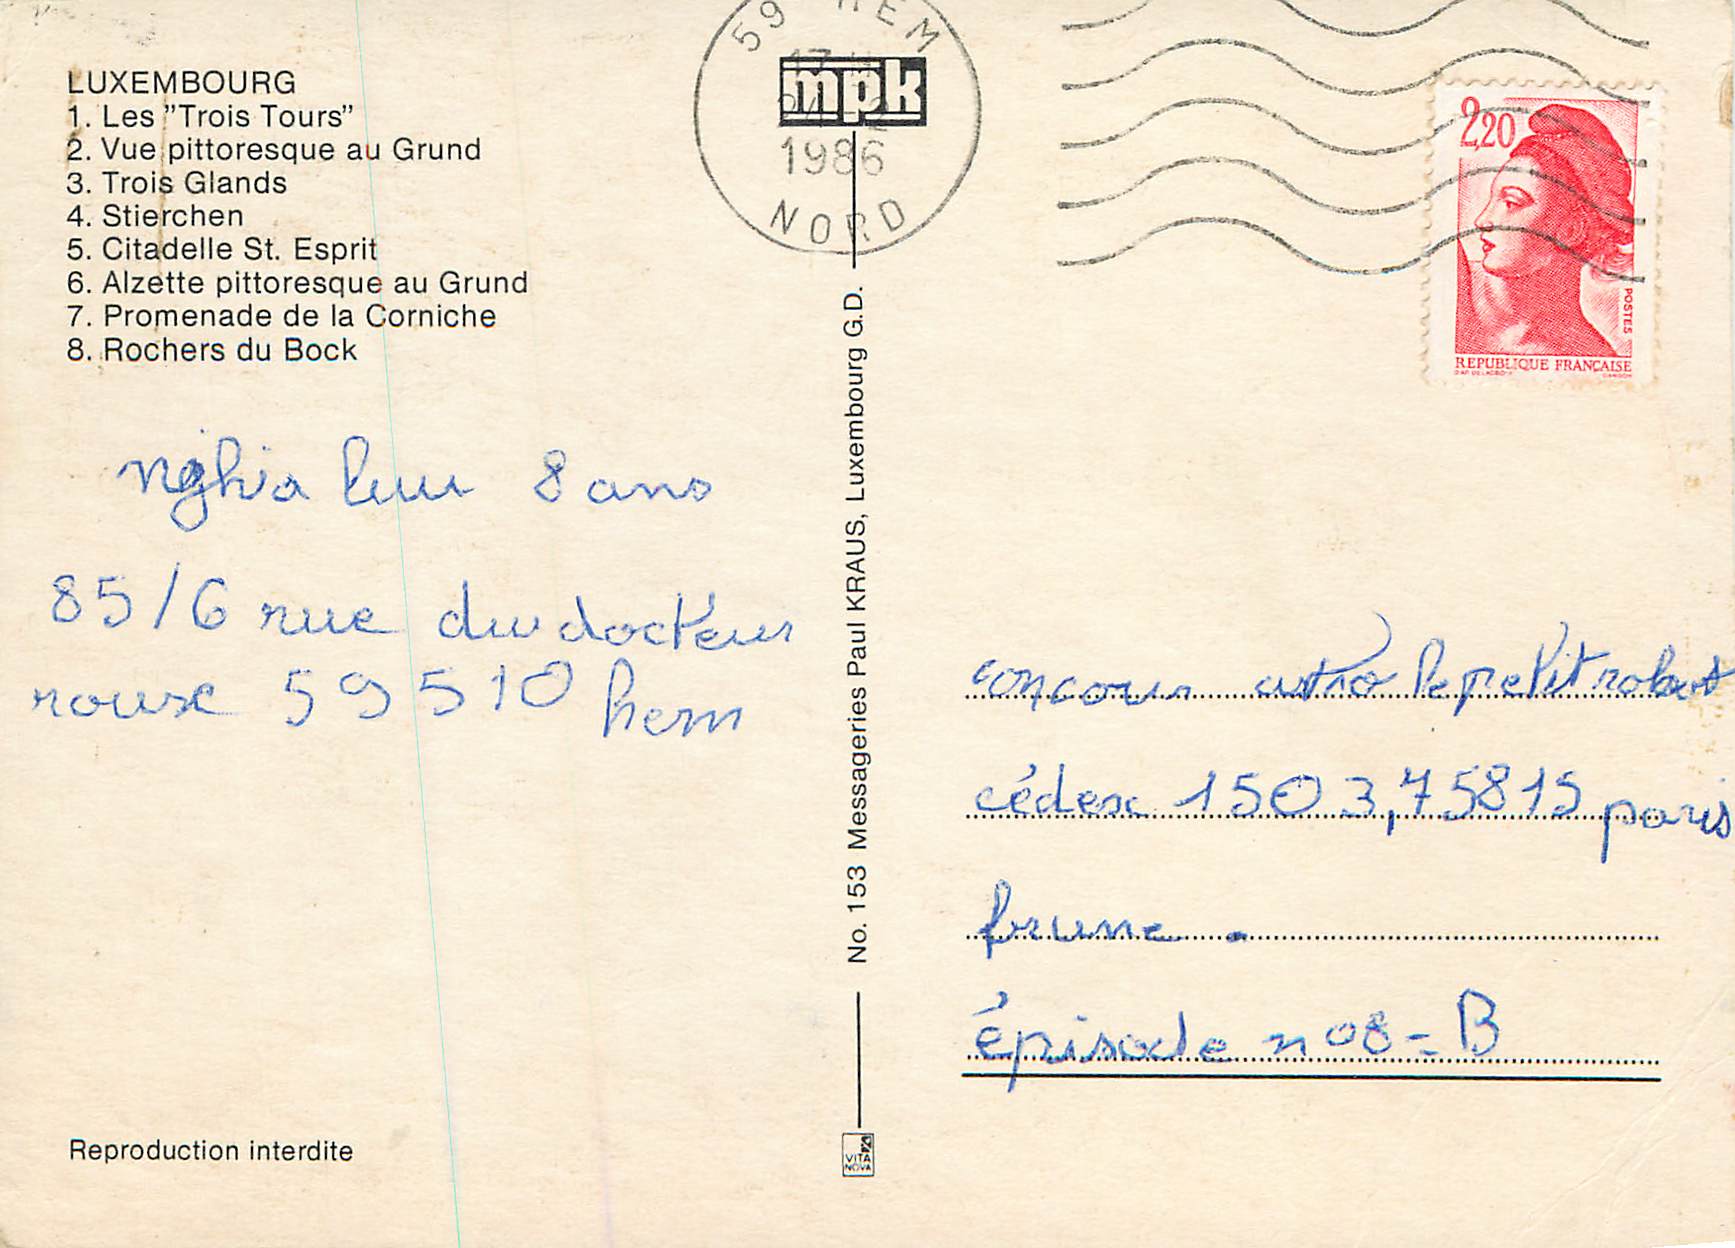 LUXEMBOURG
1. Les "Trois Tours"
2. Vue pittoresque au Grund
3. Trois Glands
4. Stierchen
5. Citadelle St. Esprit
6. Alzette pittoresque au Grund
7. Promenade de la Corniche
8. Rochers du Bock
nghia luu 8 ans
85/6 rue du docteur
rouse 59510 hem
Reproduction interdite
59 HEM
mpk
1986
NORD
No. 153 Messageries Paul KRAUS, Luxembourg G.D.
VITA
NOVA
2,20
POSTES
REPUBLIQUE FRANÇAISE
concour astro le petit robert
cédex 1503,75815 paris
brune.
épisode n°8=B